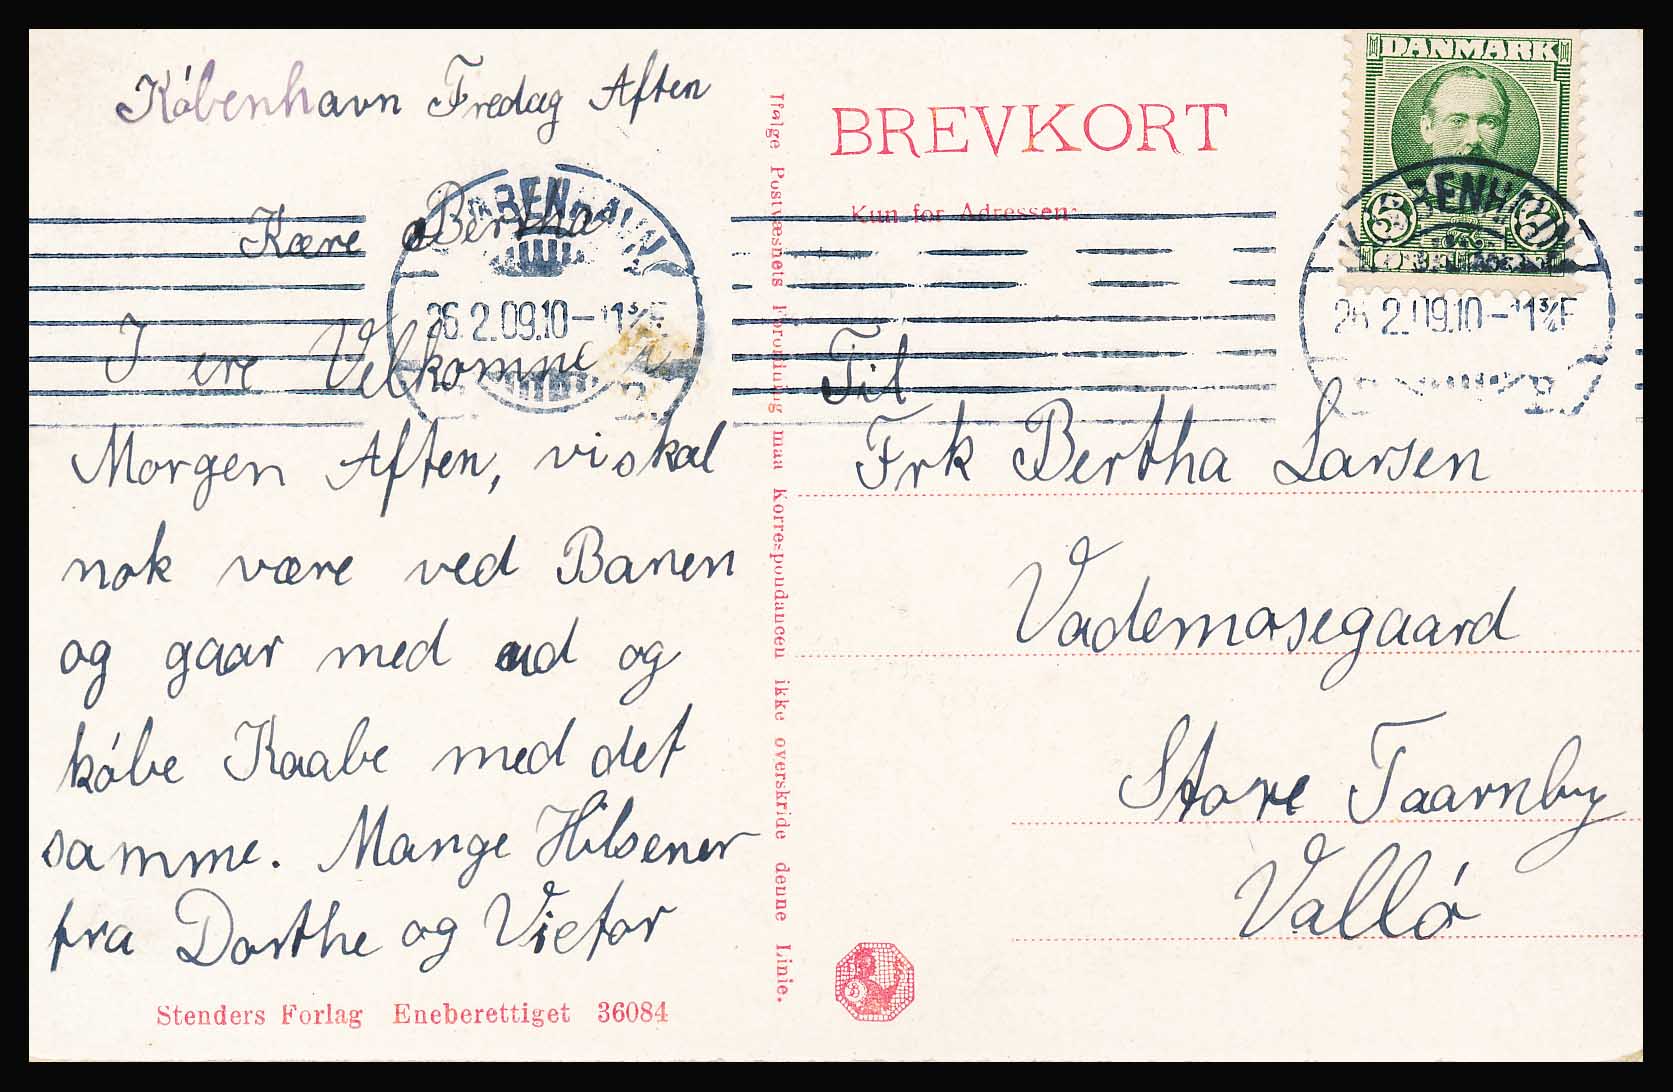 Kóbenhavn Fredag Aften
Kære Bertha
I ere Velkomne i
Morgen Aften, vi skal
nok være ved Banen
og gaar med ud og
kóbe Kaabe med det
samme. Mange Hilsener
fra Dorthe og Victor
Stenders Forlag Eneberettiget 36084
Ifølge Postvæsnets Forordning maa Korrespondancen ikke overskride denne Linie.
BREVKORT
Kun for Adressen
DANMARK
5 5
KØBENHAVN
26.2.09.10-11¾F
KØBENHAVN
26.2.09.10-11¾F
Til
Frk Bertha Larsen
Vademosegaard
Store Taarnby
Valló